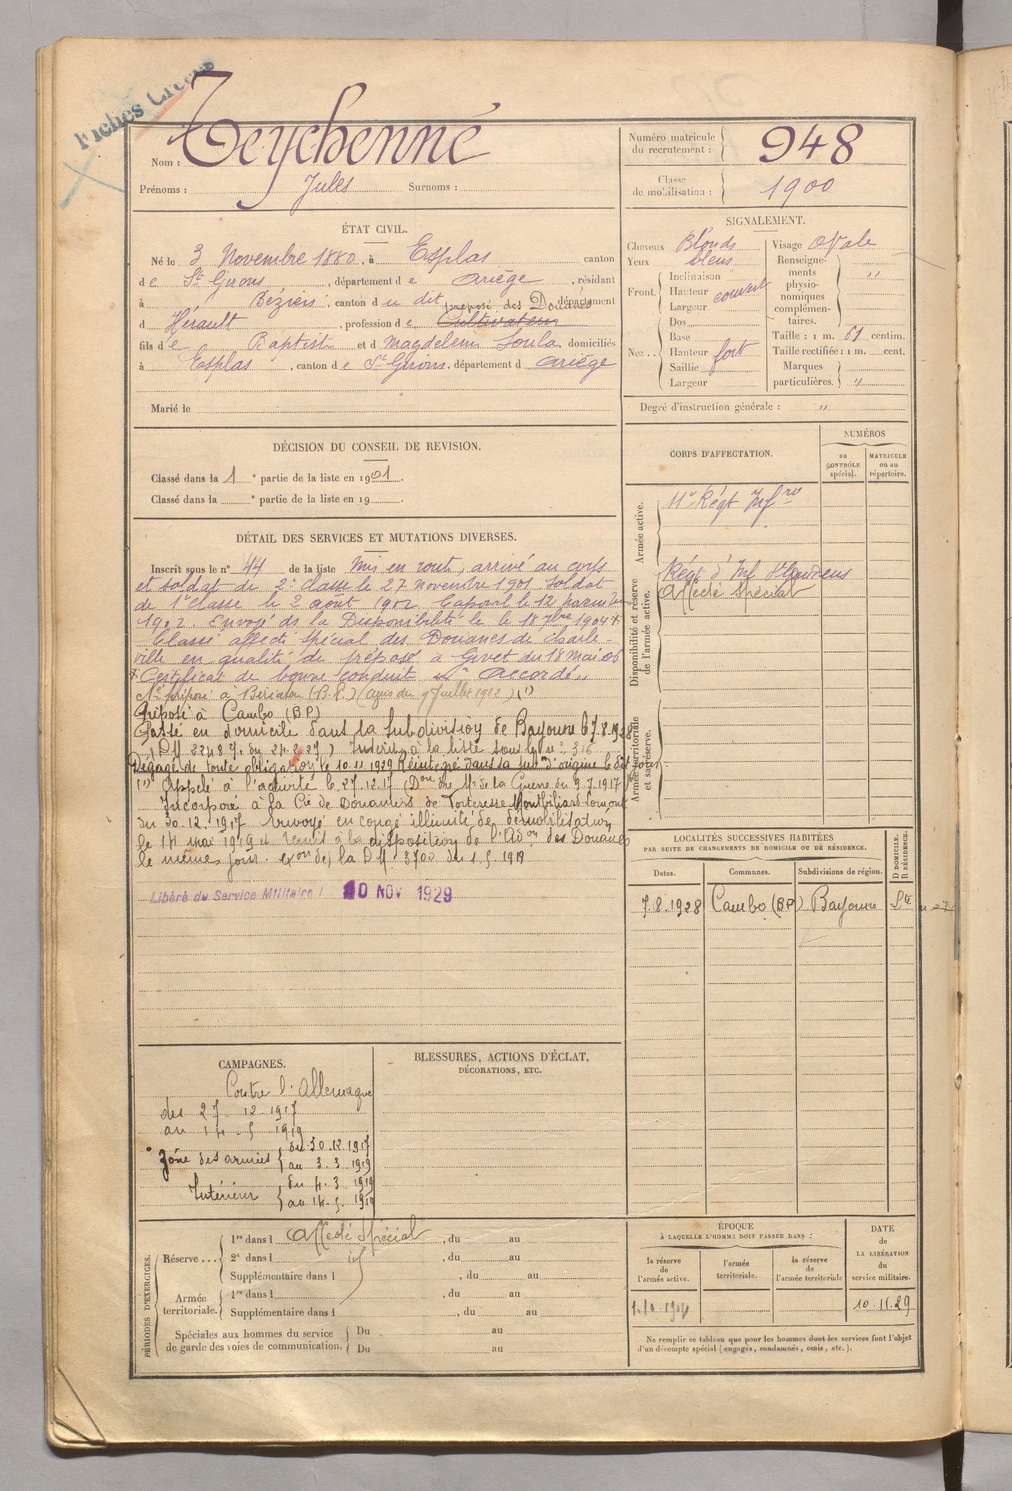 Fiches
Nom : Teychenné
Prénoms : Jules Surnoms :
Numéro matricule du recrutement : 948
Classe de mobilisation : 1900
ÉTAT CIVIL.
Né le 3 Novembre 1880, à Esplas canton
de St Girons, département de Ariège, résidant
à Béziers, canton du dit, département
préposé des Douanes
d Hérault, profession de Cultivateur
fils de Baptiste et d Magdeleine Soula, domiciliés
à Esplas, canton de St Girons, département d Ariège
Marié le
SIGNALEMENT.
Cheveux Blonds
Yeux bleus
Front. Inclinaison
Hauteur couvert
Largeur
Nez.. Dos
Base
Hauteur fort
Saillie
Largeur
Visage Ovale
Renseignements physionomiques complémentaires. "
Taille : 1 m. 61 centim.
Taille rectifiée : 1 m. cent.
Marques particulières. "
Degré d'instruction générale : "
DÉCISION DU CONSEIL DE REVISION.
Classé dans la 1 e partie de la liste en 1901.
Classé dans la e partie de la liste en 19
DÉTAIL DES SERVICES ET MUTATIONS DIVERSES.
Inscrit sous le n° 44 de la liste Mis en route, arrivé au corps
et soldat de 2e classe le 27 novembre 1901 Soldat
de 1e classe le 2 août 1902. Caporal le 12
1902. Envoyé ds la Disponibilité le 18 7bre 1904 +
Classé affecté spécial des Douanes de Charle-
ville en qualité de préposé à Givet du 18 mai 06
+ Certificat de bonne conduite Accordé
préposé à Biriatou (B.P.) (avis du 9 Juillet 1912) (1)
Préposé à Cambo (BP)
Passé en domicile dans la subdivision de Bayonne le 7.8.1928
(DM 2248 7. du 24.2.27) Inscrit à la liste sous le n° 316
Dégagé de toute obligation le 10.11.1929 Réintégré dans la sub on d'origine le dit jour
(1) Appelé à l'activité le 27.12.17 (Don du Mre de la Guerre du 9.7.1917)
Incorporé à la Cie de Douaniers de Forteresse Montbéliard Lomont
du 30.12.1917 Renvoyé en congé illimité de démobilisation
le 14 mai 1919 et remis à la disposition de l'Adon des Douanes
le même jour. exon de la DM 3700 du 1.5.1919
Libéré du Service Militaire l 10 NOV 1929
CORPS D'AFFECTATION.
NUMÉROS
au CONTRÔLE spécial.
MATRICULE ou au répertoire.
Armée active.
Régt Infrie
Disponibilité et réserve de l'armée active.
Affecté Spécial
Armée territoriale et sa réserve.
LOCALITÉS SUCCESSIVES HABITÉES
PAR SUITE DE CHANGEMENTS DE DOMICILE OU DE RÉSIDENCE.
D DOMICILE. R RÉSIDENCE.
Dates. Communes. Subdivisions de région.
7.8.1928 Cambo (BP) Bayonne
CAMPAGNES.
Contre l'Allemagne
des 27 - 12 1917
au 14 - 5 1919
Zône des armées du 30.12.1917
au 3.3 1919
Intérieur du 4.3 1919
au 14.5. 1919
BLESSURES, ACTIONS D'ÉCLAT,
DÉCORATIONS, ETC.
PÉRIODES D'EXERCICES.
Réserve ... 1re dans l Affecté Spécial, du au
2e dans l , du au
Supplémentaire dans l , du au
Armée territoriale. 1re dans l , du au
Supplémentaire dans l , du au
Spéciales aux hommes du service de garde des voies de communication. Du au
Du au
ÉPOQUE
À LAQUELLE L'HOMME DOIT PASSER DANS :
la réserve de l'armée active.
l'armée territoriale.
la réserve de l'armée territoriale
DATE de LA LIBÉRATION du service militaire.
1.10.1904
10.11.29
Ne remplir ce tableau que pour les hommes dont les services font l'objet
d'un décompte spécial (engagés, condamnés, omis, etc.).